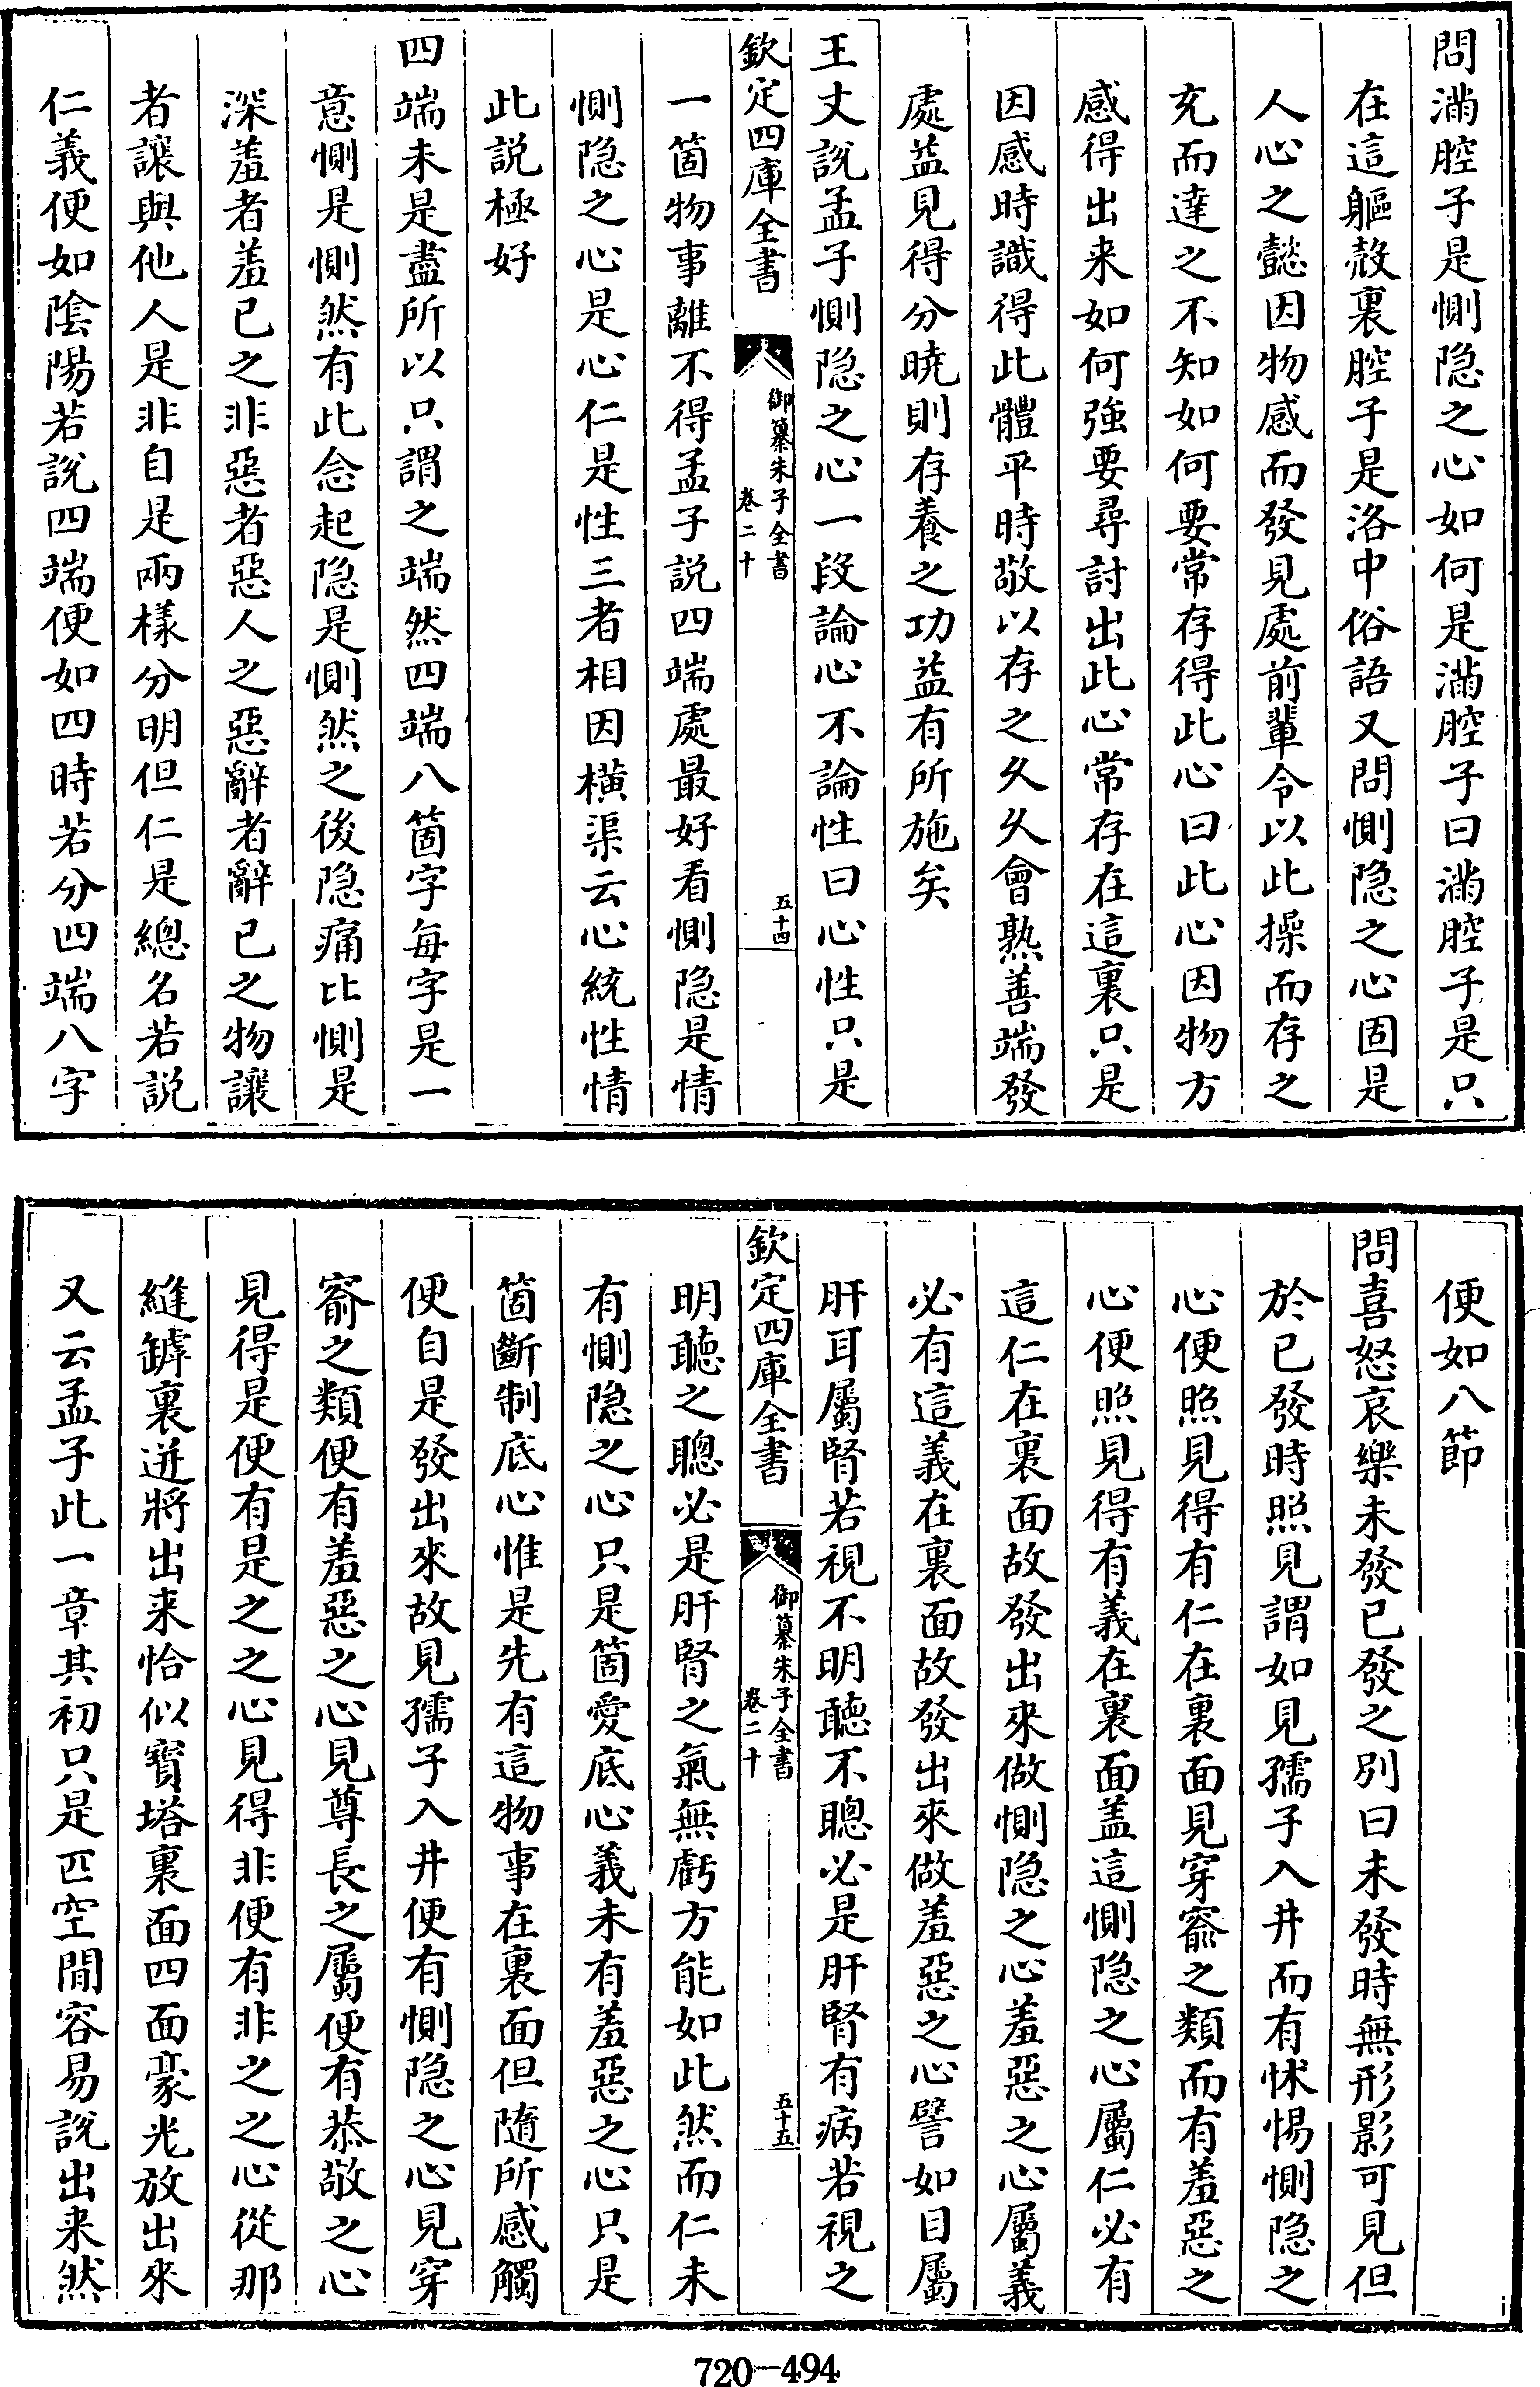 問滿腔子是惻隐之心如何是滿腔子曰滿腔子是只
在這軀殻裏腔子是洛中俗語又問惻隐之心固是
人心之懿因物感而發見處前輩令以此操而存之
充而達之不知如何要常存得此心曰此心因物方
感得出来如何強要尋討出此心常存在這裏只是
因感時識得此體平時敬以存之久久會熟善端發
處益見得分曉則存養之功益有所施矣
王丈説孟子惻隐之心一段論心不論性曰心性只是
欽定四庫全書
御纂朱子全書
卷二十
五十四
一箇物事離不得孟子説四端處最好看惻隐是情
惻隐之心是心仁是性三者相因橫渠云心統性情
此説極好
四端未是盡所以只謂之端然四端八箇字每字是一
意惻是惻然有此念起隐是惻然之後隐痛比惻是
深羞者羞已之非惡者惡人之惡辭者辭已之物讓
者讓與他人是非自是兩樣分明但仁是總名若説
仁義便如陰陽若説四端便如四時若分四端八字
便如八節
問喜怒哀樂未發已發之別曰未發時無形影可見但
於已發時照見謂如見孺子入井而有怵惕惻隐之
心便照見得有仁在裏面見穿窬之類而有羞惡之
心便照見得有義在裏面盖這惻隐之心屬仁必有
這仁在裏面故發出來做惻隐之心羞惡之心屬義
必有這義在裏面故發出來做羞惡之心譬如目屬
肝耳屬腎若視不明聽不聰必是肝腎有病若視之
欽定四庫全書
御纂朱子全書
卷二十
五十五
明聽之聰必是肝腎之氣無虧方能如此然而仁未
有惻隐之心只是箇愛底心義未有羞惡之心只是
箇斷制底心惟是先有這物事在裏面但隨所感觸
便自是發出來故見孺子入井便有惻隐之心見穿
窬之類便有羞惡之心見尊長之屬便有恭敬之心
見得是便有是之之心見得非便有非之之心從那
縫罅裏迸將出来恰似寶塔裏面四面毫光放出來
又云孟子此一章其初只是匹空閒容易説出来然
720-494